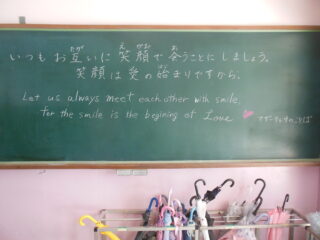 いつもお互いに笑顔で会うことにしましょう。
笑顔は愛の始まりですから。
Let us always meet each other with smile,
for the smile is the begining of Love
マザーテレサのことば